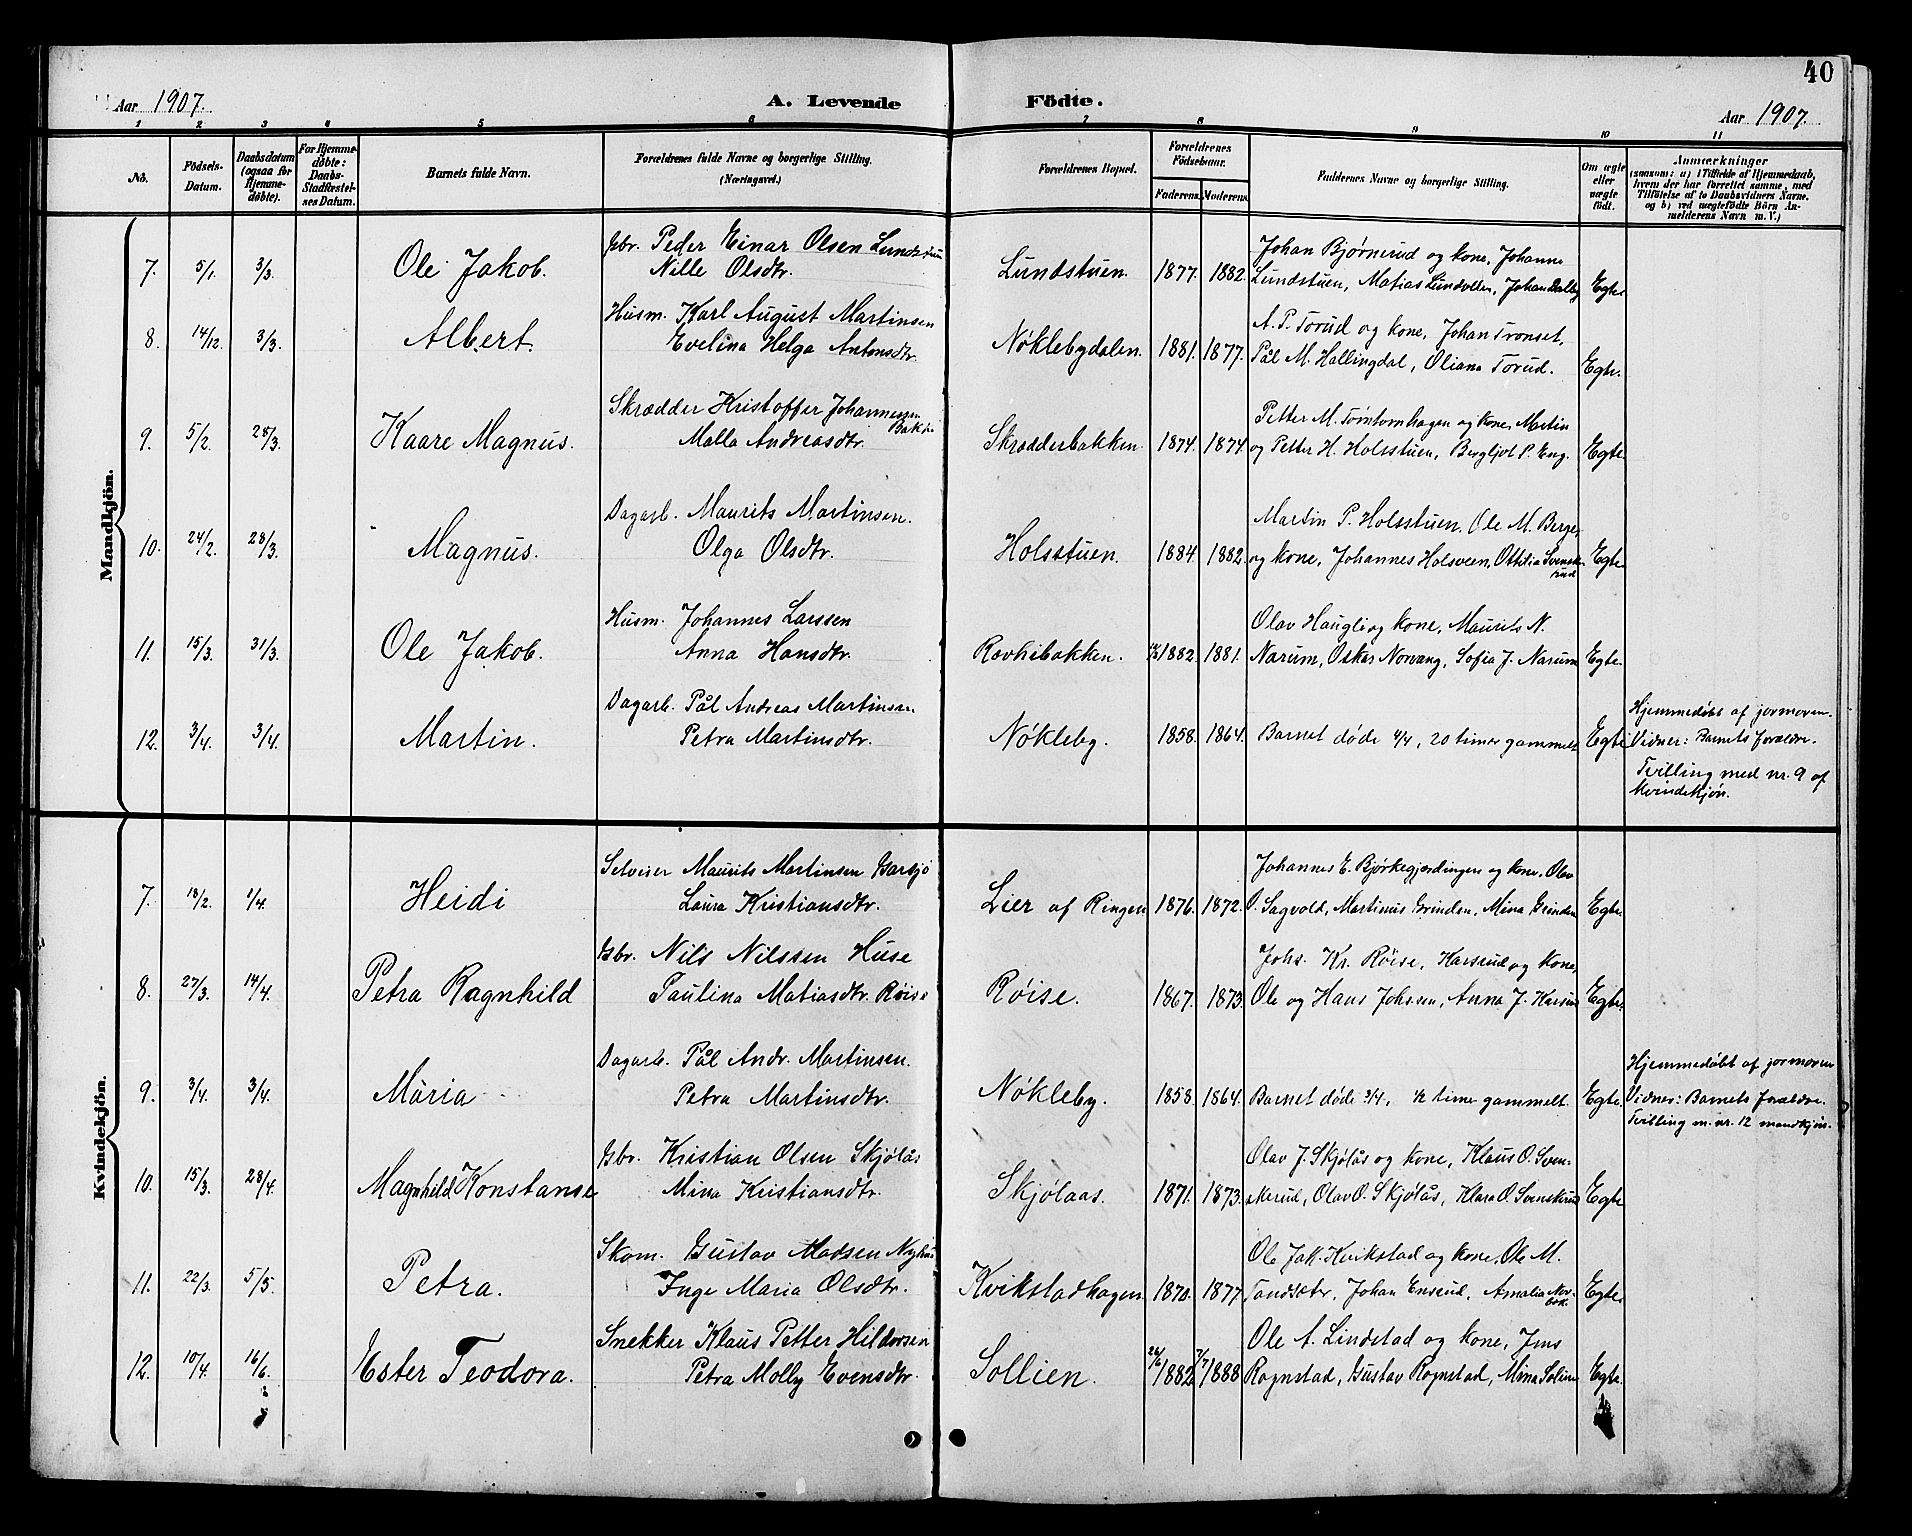 40
Aar 1907.
A. Levende Födte.
Aar 1907.
1 2 3 4 5 6 7 8 9 10 11
No.
Födsels-Datum.
Daabsdatum (ogsaa for Hjemme-döbte).
For Hjemme-döbte: Daabs-Stadfæstel-ses Datum.
Barnets fulde Navn.
Forældrenes fulde Navne og borgerlige Stilling.
(Næringsvei.)
Forældrenes Bopæl.
Forældrenes Födselsaar.
Faderens. Moderens.
Faddernes Navne og borgerlige Stilling.
Om ægte eller uægte födt.
Anmærkninger
(saasom: a) i Tilfælde af Hjemmedaab,
hvem der har forrettet samme, med
Tilföielse af to Daabsvidners Navne,
og b) ved uægtefödte Börn An-
melderens Navn m. V.)
Mandkjön.
7. 5/1 3/3. Ole Jakob. Gbr. Peder Einar Olsen Lundstuen
Nille Olsdtr. Lundstuen. 1877. 1882. Johan Bjørnerud og kone, Johanne
Lundstuen, Matias Lundvelen, Johan Dalby Egte.
8. 14/12. 3/3. Albert. Husm. Karl August Martinsen
Evelina Helga Antonsdtr. Nøklebydalen. 1881. 1877. A. P. Torud og kone, Johan Tronset,
Pål M. Hallingdal, Oliana Torud. Egte.
9. 5/2. 28/3. Kaare Magnus. Skrædder Kristoffer Johannessen
Bakke
Malla Andreasdtr. Skrædderbakken. 1874. 1874. Petter M. Tømtomhagen og kone, Martin
og Petter H. Holsstuen, Bergljot P. Eng. Egte.
10. 24/2. 28/3. Magnus. Dagarb. Maurits Martinsen.
Olga Olsdtr. Holsstuen. 1884. 1882. Martin P. Holsstuen, Ole M. Berger
og kone, Johannes Holsveen, Ottilia Svensk-
rud Egte.
11. 15/3. 31/3. Ole Jakob. Husm. Johannes Larssen
Anna Hansdtr. Rovhibakken. 1882. 1881. Olav Haugli og kone, Maurits N.
Narum, Oskar Norvang, Sofia J. Narum Egte.
12. 3/4. 3/4. Martin. Dagarb. Pål Andreas Martinsen
Petra Martinsdtr. Nøkleby. 1858. 1864. Barnet døde 4/4, 20 timer gammelt Egte
Hjemmedøbt af jormoren.
Vidner: Barnets forældre.
Tvilling med nr. 9 af
kvindekjøn.
Kvindekjön.
7. 18/2. 1/4. Heidi Selveier Maurits Martinsen Garsjø
Laura Kristiansdtr. Lier af Ringen 1876. 1872. Johannes E. Bjørkegjerdingen og kone, Olav
O. Sagvold, Martinus Grinden, Mina Grinden Egte.
8. 27/3. 14/4. Petra Ragnhild Gbr. Nils Nilssen Huse
Paulina Matiasdtr. Røise Røise. 1867. 1873. Johs. Kr. Røise, Harsrud og kone,
Ole og Hans Johssen, Anna J. Harsrud Egte.
9. 3/4. 3/4. Maria Dagarb. Pål Andr. Martinsen.
Petra Martinsdtr. Nøkleby. 1858. 1864. Barnet døde 3/4, 1/2 time gammelt. Egte.
Hjemmedøbt af jormoren
Vidner: Barnets forældre.
Tvilling m. nr. 12 mandkjøn.
10. 15/3. 28/4. Magnhild Konstanse Gbr. Kristian Olsen Skjølås
Mina Kristiansdtr. Skjølaas. 1871. 1873. Olav J. Skjølås og kone, Klaus O. Sven-
skerud, Olav O. Skjølås, Klara O. Svenskrud Egte
11. 22/3. 5/5. Petra. Skom. Gustav Madsen Nyhus
Inge Maria Olsdtr. Kvikstadhagen 1870. 1877 Ole Jak. Kvikstad og kone, Ole M.
Tandsæter, Johan Ensrud, Amalia Nor-
bak. Egte.
12. 10/4. 16/6. Ester Teodora. Snekker Klaus Petter Hildorsen
Petra Molly Evensdtr. Sollien. 26/6 1882. 7/7 1888 Ole A. Lindstad og kone, Jens
Rognstad, Gustav Rognstad, Mina Solien Egte.